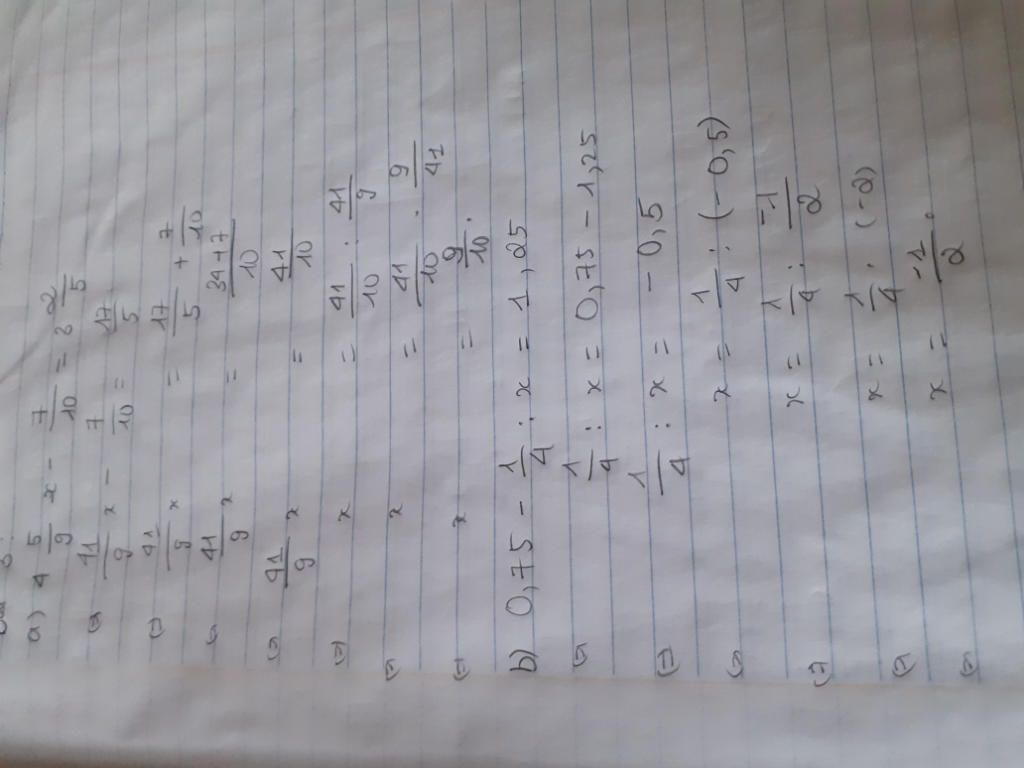 a) 4 5/9 x - 7/10 = 3 2/5
(=) 41/9 x - 7/10 = 17/5
(=) 41/9 x = 17/5 + 7/10
(=) 41/9 x = 34+7/10
(=) 41/9 x = 41/10
(=) x = 41/10 : 41/9
(=) x = 41/10 . 9/41
(=) x = 9/10.
b) 0,75 - 1/4 : x = 1,25
(=) 1/4 : x = 0,75 - 1,25
(=) 1/4 : x = - 0,5
(=) x = 1/4 : (- 0,5)
(=) x = 1/4 : -1/2
(=) x = 1/4 . (-2)
(=) x = -1/2.